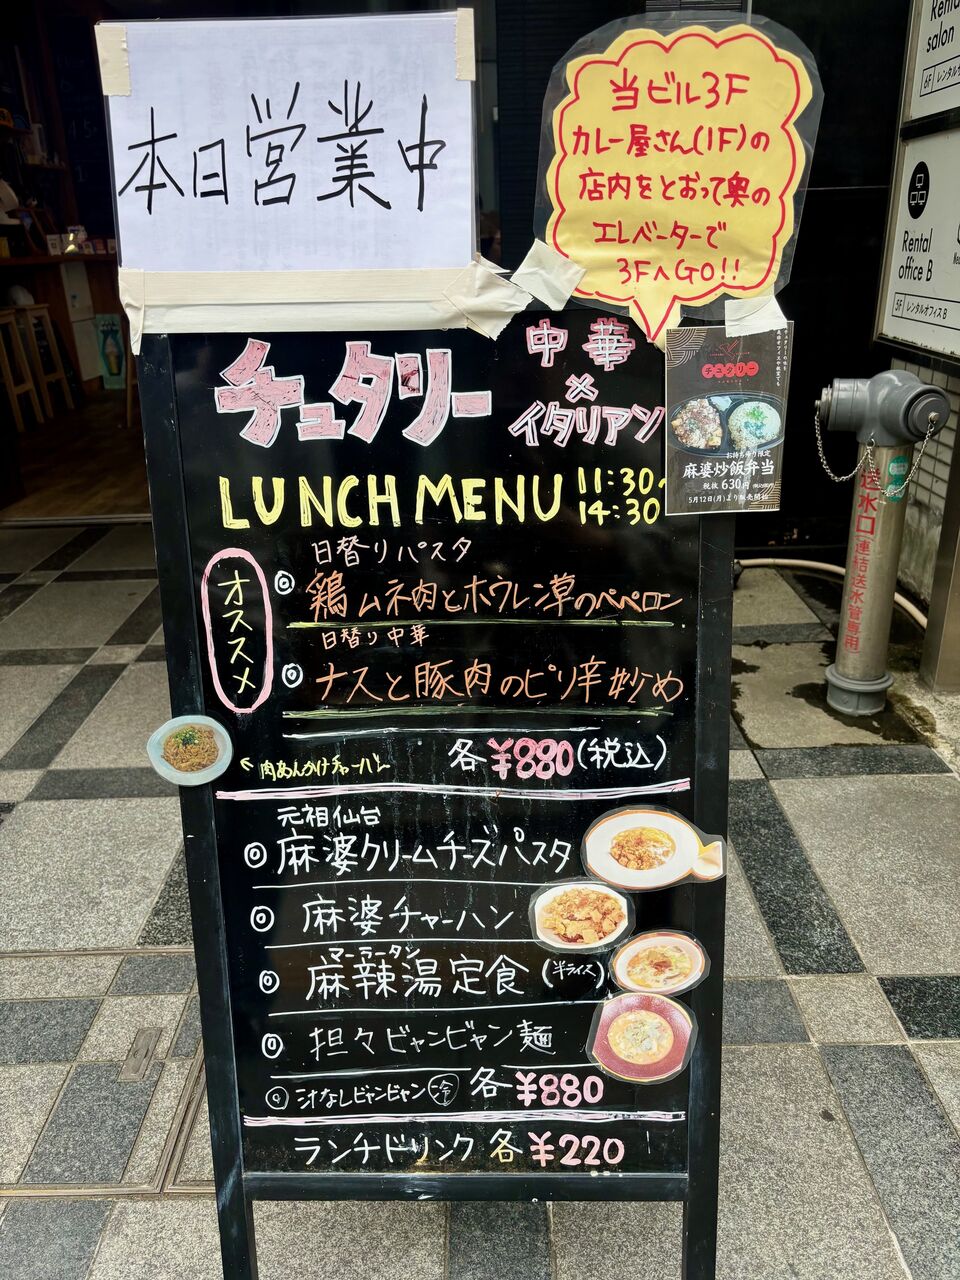 本日営業中
当ビル3F
カレー屋さん(1F)の
店内をとおって奥の
エレベーターで
3FへGO!!
チュタリー
中華
×
イタリアン
チュタリー
お持ち帰り限定
麻婆炒飯弁当
税抜630円
5月12日(月)より販売開始
LUNCH MENU 11:30~
14:30
オススメ
日替りパスタ
◎鶏ムネ肉とホウレン草のペペロン
日替り中華
◎ナスと豚肉のピリ辛炒め
各¥880(税込)
肉あんかけチャーハン
元祖仙台
◎麻婆クリームチーズパスタ
◎麻婆チャーハン
マーラータン
◎麻辣湯定食(半ライス)
◎担々ビャンビャン麺
◎汁なしビャンビャン冷 各¥880
ランチドリンク 各¥220
Rental
salon
6F
Rental
office B
5F レンタルオフィスB
送水口
(連結送水管専用)